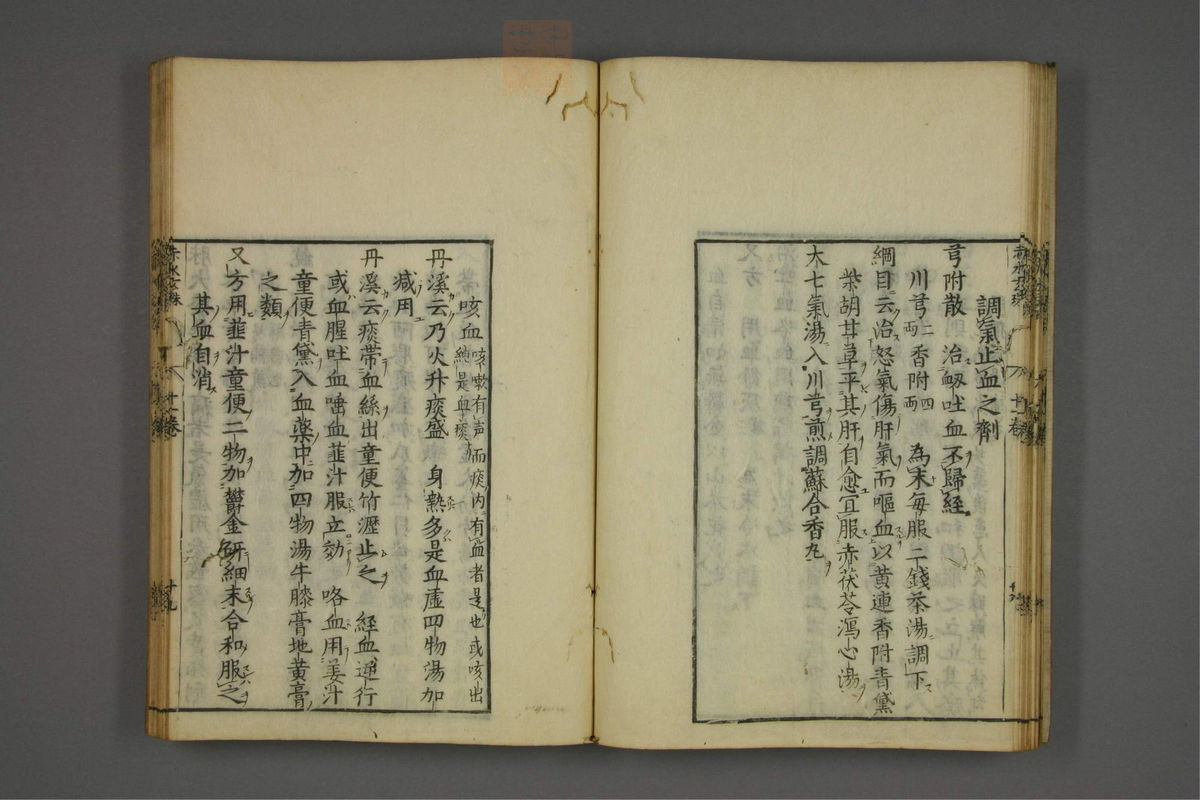 調氣止血之劑
芎附散　治衂吐血不歸経
川芎二両香附四両　為末毎服二錢茶湯調下
綱目云治怒氣傷肝氣而嘔血以黄連香附青黛
柴胡甘草平其肝自愈宜服赤茯苓瀉心湯
大七氣湯入川芎煎調蘇合香丸
咳血 咳嗽有声而痰内有血者是也或咳出
純是血痰
丹溪云乃火升痰盛　身熱多是血虚四物湯加
減用
丹溪云痰帶血絲出童便竹瀝止之　経血逆行
或血腥吐血唾血韮汁服立効　咯血用姜汁
童便青黛入血藥中加四物湯牛膝膏地黄膏
之類
又方用韮汁童便二物加欝金研細末合和服之
其血自消
十一巻
十九